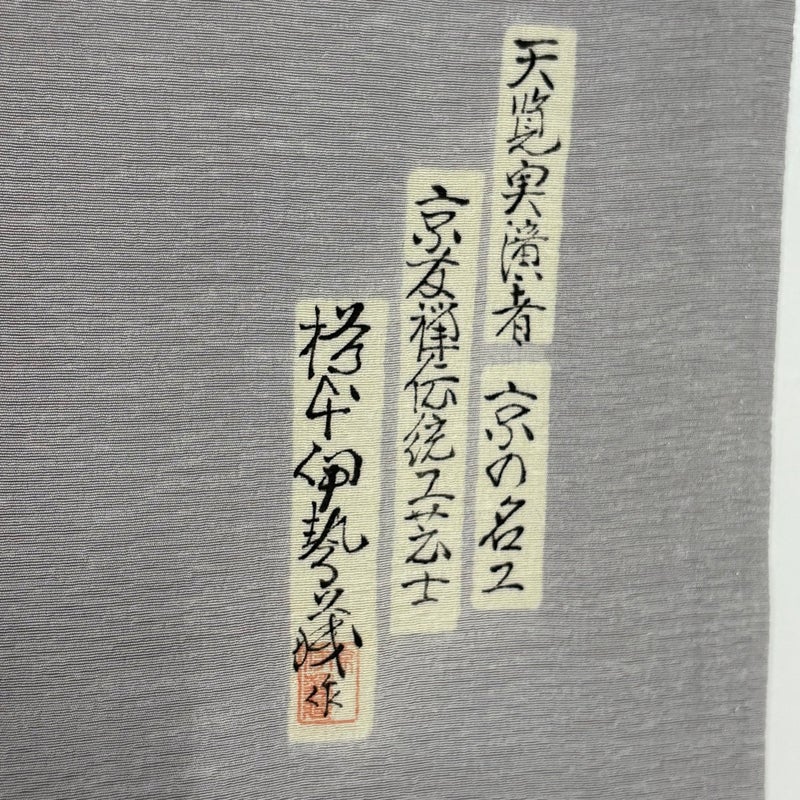 天覧実演者 京の名工
京友禅伝統工芸士
伊勢 作